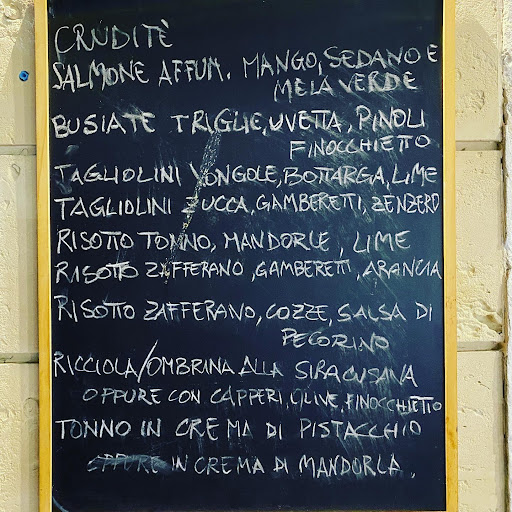 CRUDITÈ
SALMONE AFFUM. MANGO, SEDANO E
MELA VERDE
BUSIATE TRIGLIE, UVETTA, PINOLI
FINOCCHIETTO
TAGLIOLINI VONGOLE, BOTTARGA, LIME
TAGLIOLINI ZUCCA, GAMBERETTI, ZENZERO
RISOTTO TONNO, MANDORLE, LIME
RISOTTO ZAFFERANO, GAMBERETTI, ARANCIA
RISOTTO ZAFFERANO, COZZE, SALSA DI
PECORINO
RICCIOLA/OMBRINA ALLA SIRACUSANA
OPPURE CON CAPPERI, OLIVE, FINOCCHIETTO
TONNO IN CREMA DI PISTACCHIO
OPPURE IN CREMA DI MANDORLA.